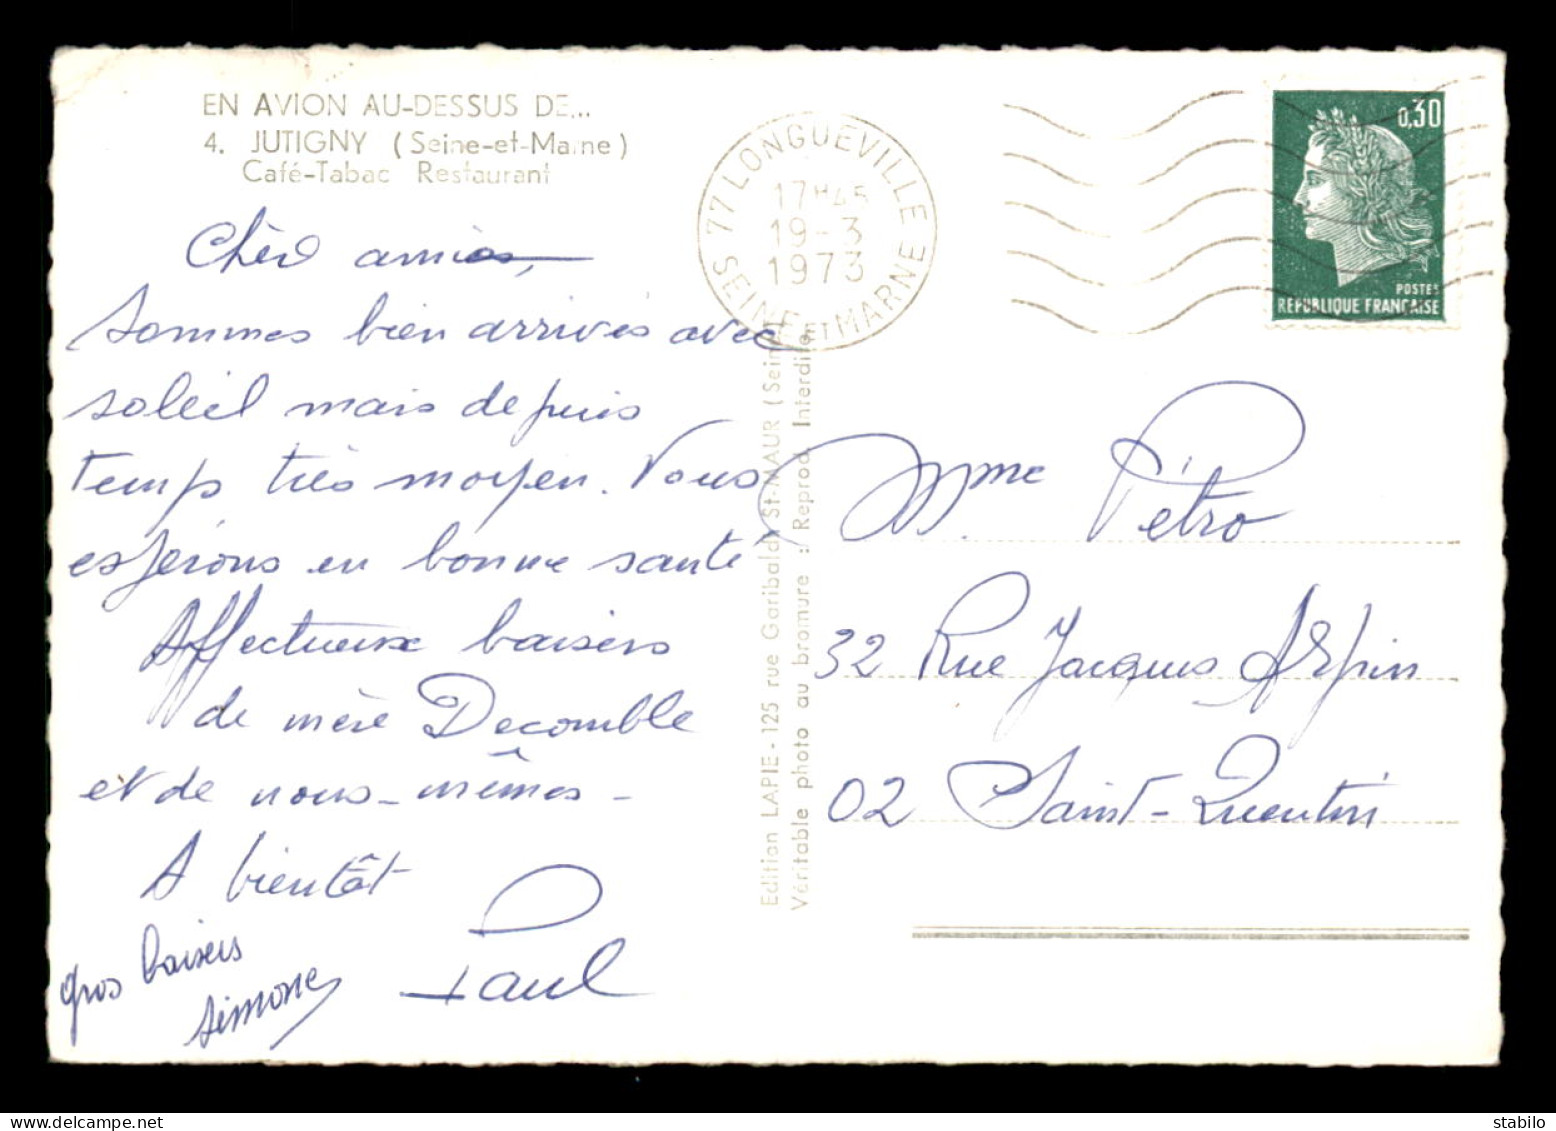 EN AVION AU-DESSUS DE...
4. JUTIGNY (Seine-et-Marne)
Café-Tabac Restaurant
77 LONGUEVILLE
17H45
19-3
1973
SEINE ET MARNE
0,30
POSTES
REPUBLIQUE FRANÇAISE
amies,
Sommes bien arrivés avec
soleil mais depuis
temps très moyen. Vous
espérons en bonne santé
Affectueux baisers
de mère Decomble
et de nous-mêmes -
A bientôt
Paul
gros baisers
Simone
Edition LAPIE - 125 rue Garibaldi St-MAUR (Seine
Véritable photo au bromure : Reprod Interdite
Mme Pétro
32 Rue Jacques Arpin
02 Saint-Quentin
delcampe.net
stabilo